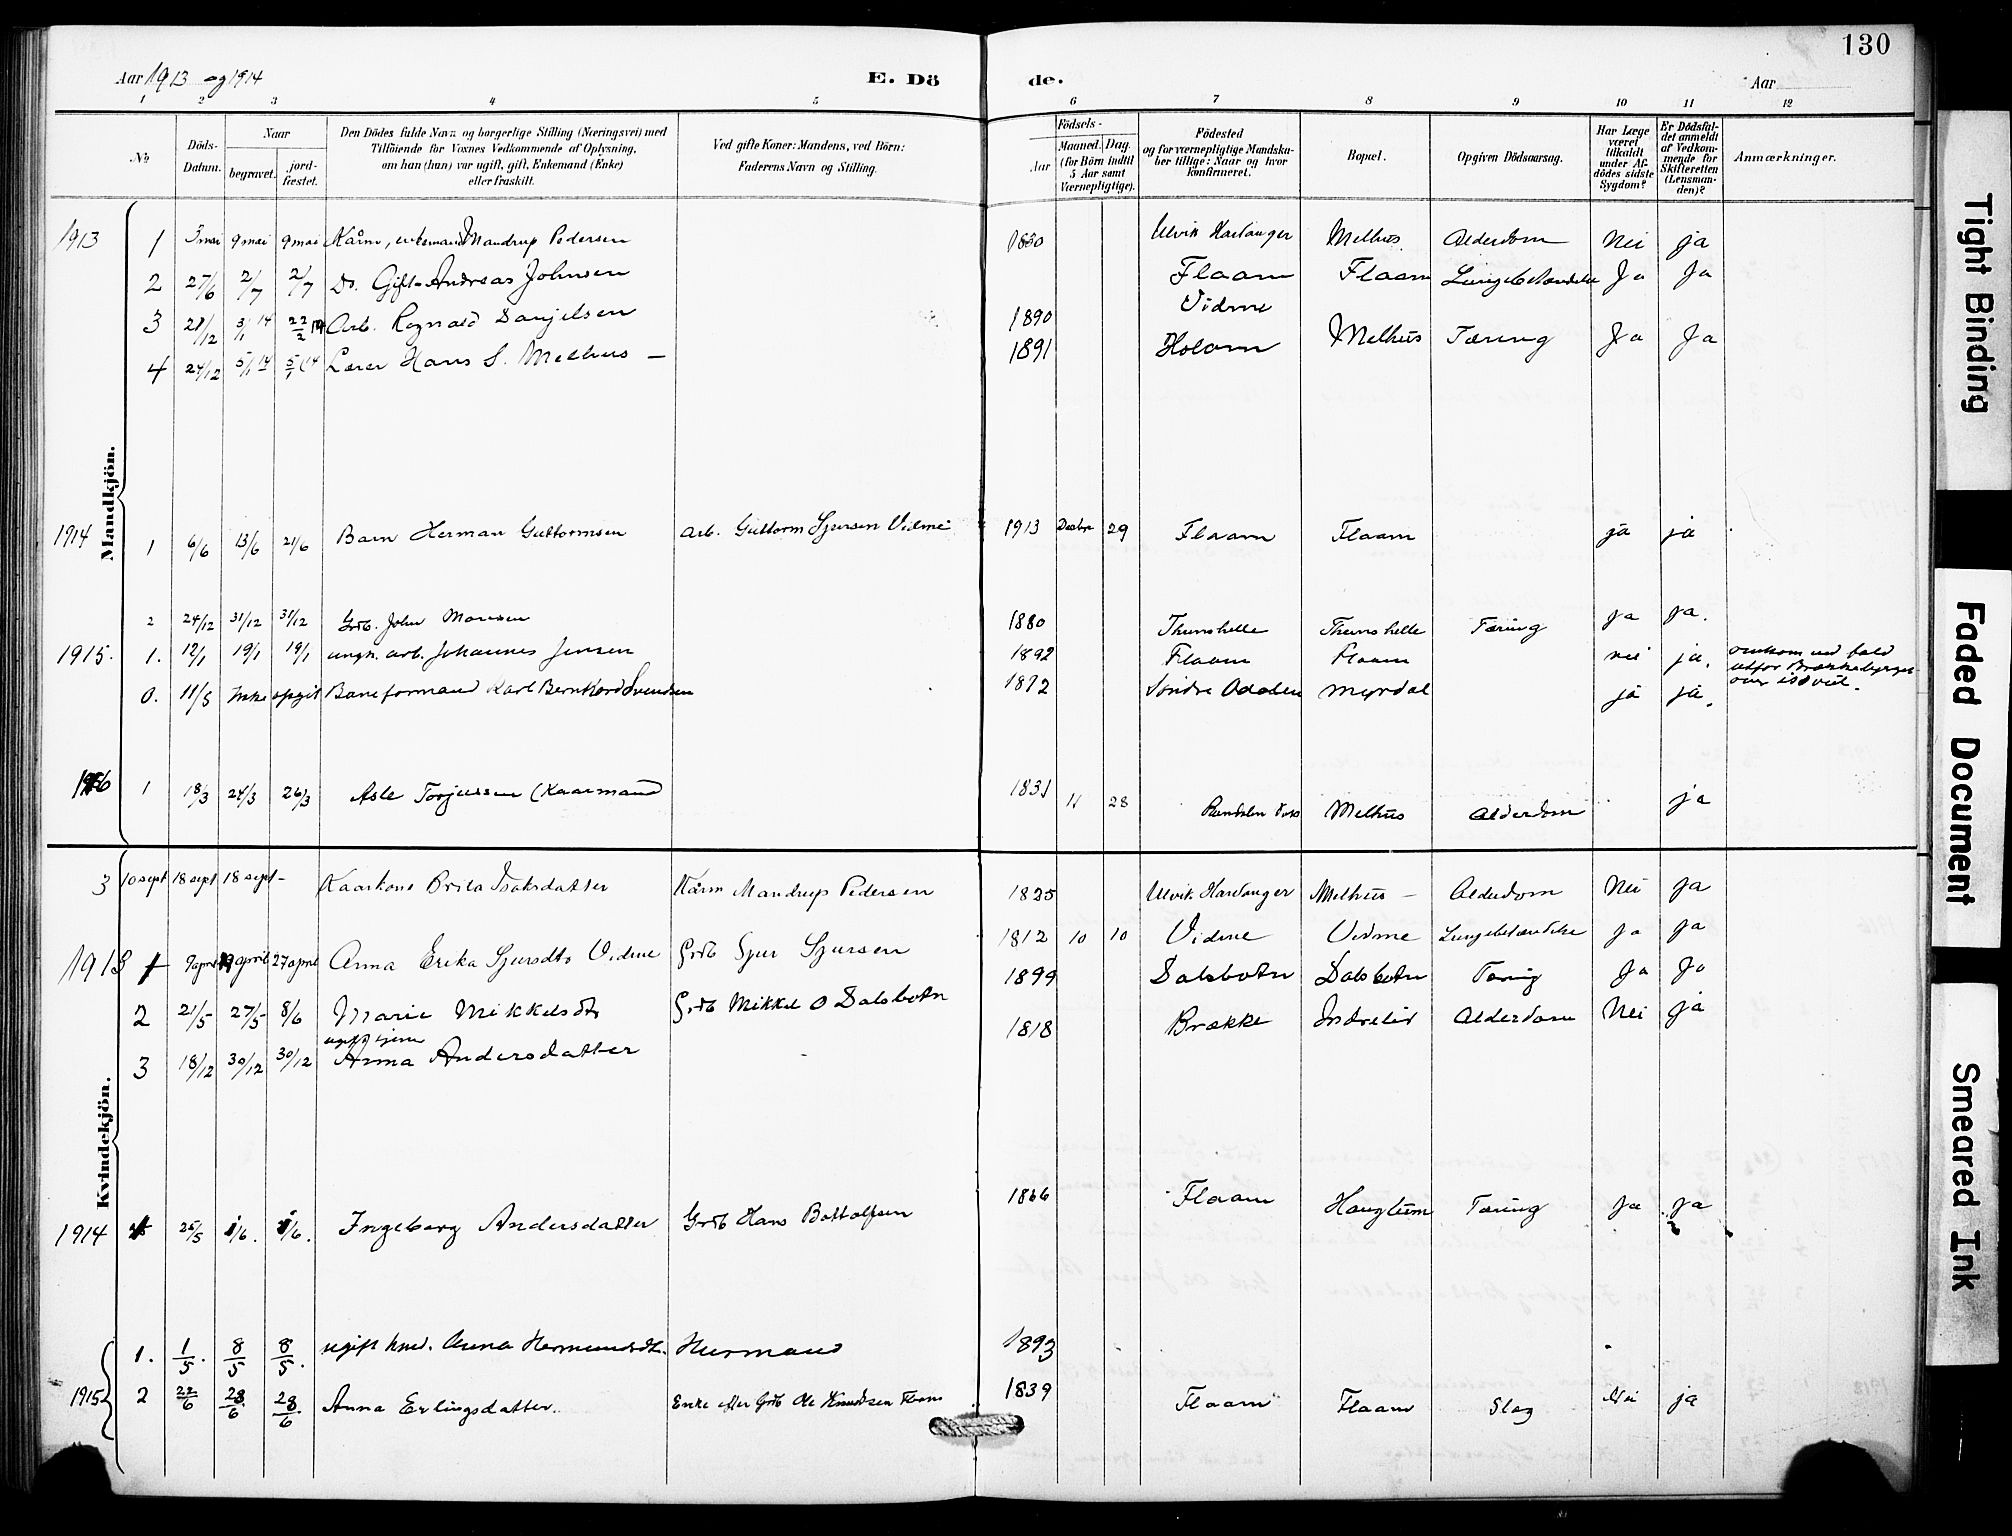 130
Aar 1913 og 1914
E. Dö de.
Aar
1 2 3 4 5 6 7 8 9 10 11 12
No
Döds-Datum.
Naar
begravet.
jord-fæstet.
Den Dödes fulde Navn og borgerlige Stilling (Næringsvei) med
Tilföiende for Voxnes Vedkommende af Oplysning,
om han (hun) var ugift, gift, Enkemand (Enke)
eller fraskilt.
Ved gifte Koner: Mandens, ved Börn:
Faderens Navn og Stilling.
Födsels-
Aar
Maaned. Dag.
(for Börn indtil
5 Aar samt
Værnepligtige).
Födested
og for værnepligtige Mandska-
ber tillige: Naar og hvor
konfirmeret.
Bopæl.
Opgiven Dödsaarsag.
Har Læge
været
tilkaldt
under Af-
dödes sidste
Sygdom?
Er Dödsfal-
det anmeldt
af Vedkom-
mende for
Skifteretten
(Lensman-
den)?
Anmærkninger.
Mandkjön.
1913 1 3 mai 9 mai 9 mai Kårm, enkemand Mandrup Pedersen 1830 Ulvik Hardanger Melhus Alderdom Nei ja
2 27/6 2/7 2/7 Do. Gift Andreas Johnsen Flaam Flaam Lungebetændelse Ja Ja
3 28/12 3/1 14 22/2 14 Arb. Ragnald Danjelsen 1890 Vidme
4 24/12 5/1 14 5/1 14 Lærer Hans S. Melhus — 1891 Holam Melhus Tæring Ja Ja
1914 1 6/6 13/6 21/6 Barn Herman Guttormsen Arb. Guttorm Sjursen Vidme 1913 Decbr 29 Flaam Flaam ja ja
2 24/12 31/12 31/12 Grdb. John Monsen 1880 Thunshelle Thunshelle Tæring ja ja.
1915. 1. 12/1 19/1 19/1 ungk. arb. Johannes Jensen 1892 Flaam Flaam nei ja. omkom ved fald
utfor Brækkebjerget
0. 11/5 Ikke opgit Baneformand Karl Bernhard Svendsen 1872 Söndre Odalen Myrdal ja ja.
1916 1 18/3 24/3 26/3 Asle Torjussen (Kaarmand 1831 11 28 Rundalen Voss Melhus Alderdom ja
Kvindekjön.
3 10 sept 18 sept 18 sept - Kaarkone Brita Isaksdatter Kårm Mandrup Pedersen 1825 Ulvik Hardanger Melhus — Alderdom Nei ja
1913 1 9 april 19 april 27 april Anna Erika Sjursdtr Vidme Grdb Sjur Sjursen 1812 10 10 Vidme Vidme Lungebetændelse ja ja
2 21/5 27/5 8/6 Marie Mikkelsdtr Grdb Mikkel O Dalsbotn 1899 Dalsbotn Dalsbotn Tæring Ja Ja
3 18/12 30/12 30/12 Anna Andersdatter 1818 Brække Indrelid Alderdom Nei ja
1914 25/5 1/6. 1/6. Ingeborg Andersdatter Grdb Hans Bottolfsen 1866 Flaam Haugtun Tæring Ja ja
1915 1. 1/5. 8/5 8/5. ugift hmd. Anna Hermundsdtr. Hermand 1893
2 22/6 28/6 28/6 Anna Erlingsdatter. Enke efter Grdb Ole Knudsen Flaam 1839 Flaam Flaam Slag Nei ja
Tight Binding
Faded Document
Smeared Ink